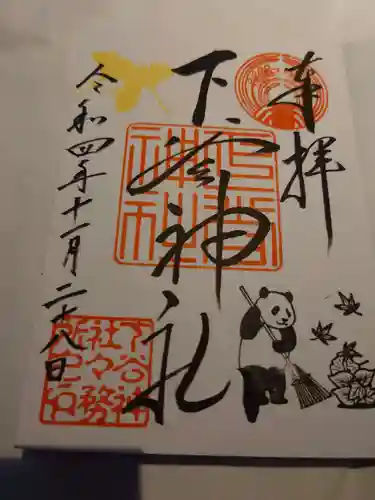 奉拝
下谷神社
令和四年十一月二十八日
下谷神
社々務
所之印